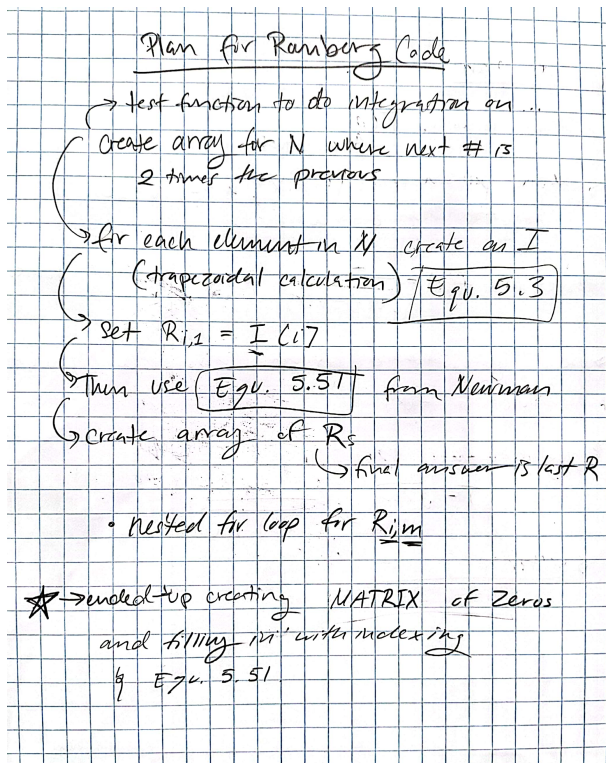 Plan for Ramberg Code
→ test function to do integration on ...
create array for N where next # is
2 times the previous
→ for each element in N create an I
(trapezoidal calculation) Equ. 5.3
→ set R_{i,1} = I(i)
→ Then use Equ. 5.51 from Newman
→ create array of Rs
↳ final answer is last R
• nested for loop for R_{i,m}
★ → ended up creating MATRIX of Zeros
and filling in with indexing
& Equ. 5.51